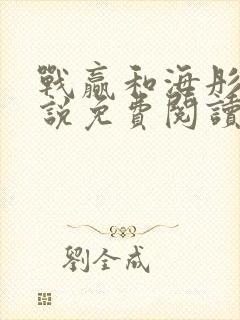 戰贏和海彤
說免費閱讀
劉全成